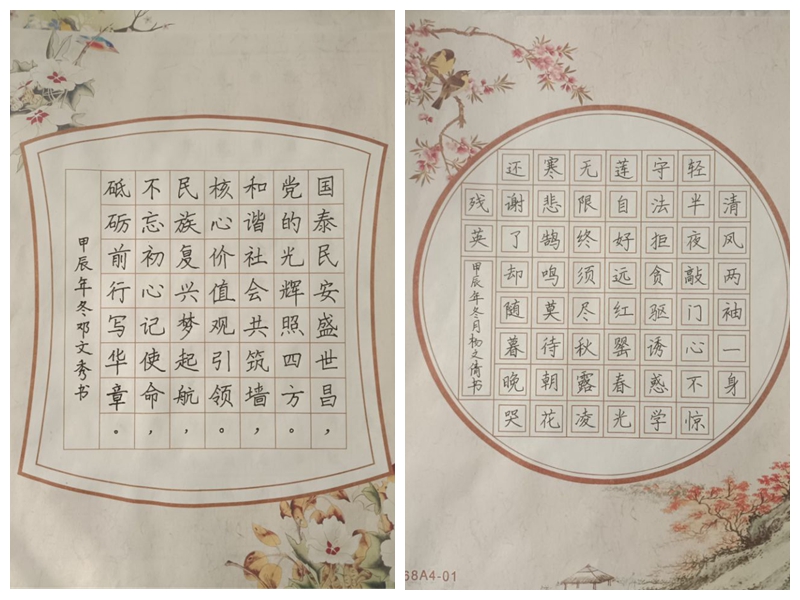 国泰民安盛世昌，
党的光辉照四方。
和谐社会共筑墙，
核心价值观引领。
民族复兴梦起航，
不忘初心记使命，
砥砺前行写华章。
甲辰年冬邓文秀书
清风两袖一身
轻半夜敲门心不惊
守法拒贪驱诱惑学
莲自好远红罂春光
无限终须尽秋露凌
寒悲鹄鸣莫待朝花
还谢了却随暮晚哭
残英
甲辰年冬月杨文倩书
68A4-01